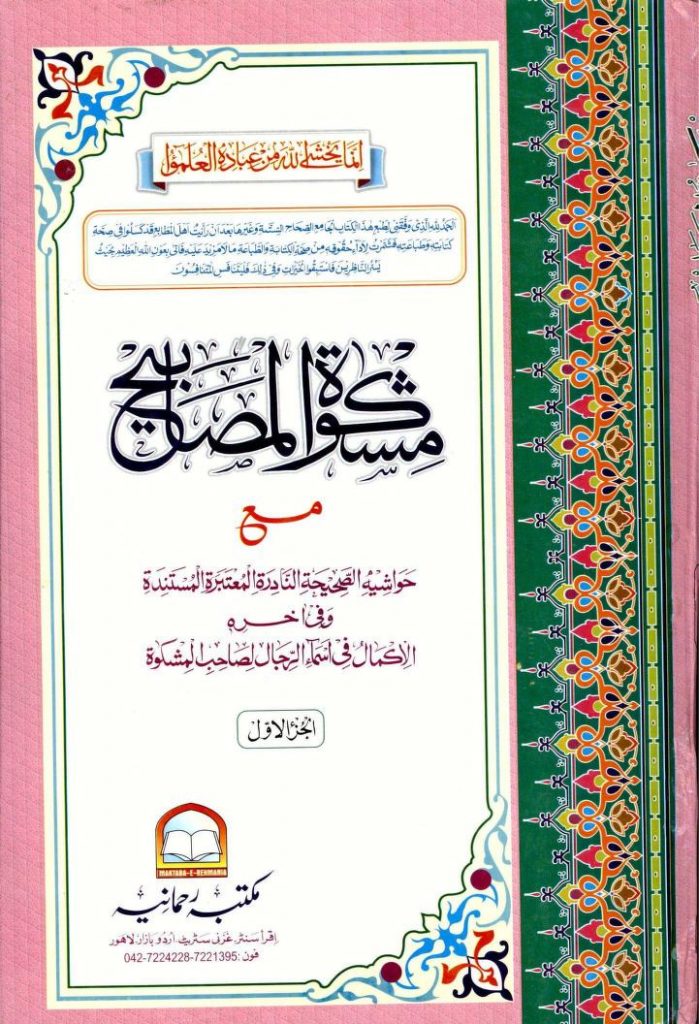 إنما يخشى الله من عباده العلمؤا
الحمد لله الذي وفقني لطبع هذا الكتاب الجامع الصحاح الستة وغيرها بعد ان رأيت اهل المطابع قد كسلوا في صحة
كتابته وطباعته فشمرت لاداء حقوقه من صحة الكتابة والطباعة مالا مزيد عليه فاتى بعون الله العظيم بحيث
يسر الناظرين فاستبقوا الخيرات وفي ذلك فليتنافس المتنافسون
مشكوة المصابيح
مع
حواشيه الصحيحة النادرة المعتبرة المستندة
وفي اخره
الاكمال في اسماء الرجال لصاحب المشكوة
الجزء الاول
MAKTABA-E-REHMANIA
مکتبہ رحمانیہ
اقرأ سنٹر غزنی سٹریٹ اردو بازار لاہور
فون: 042-7224228-7221395